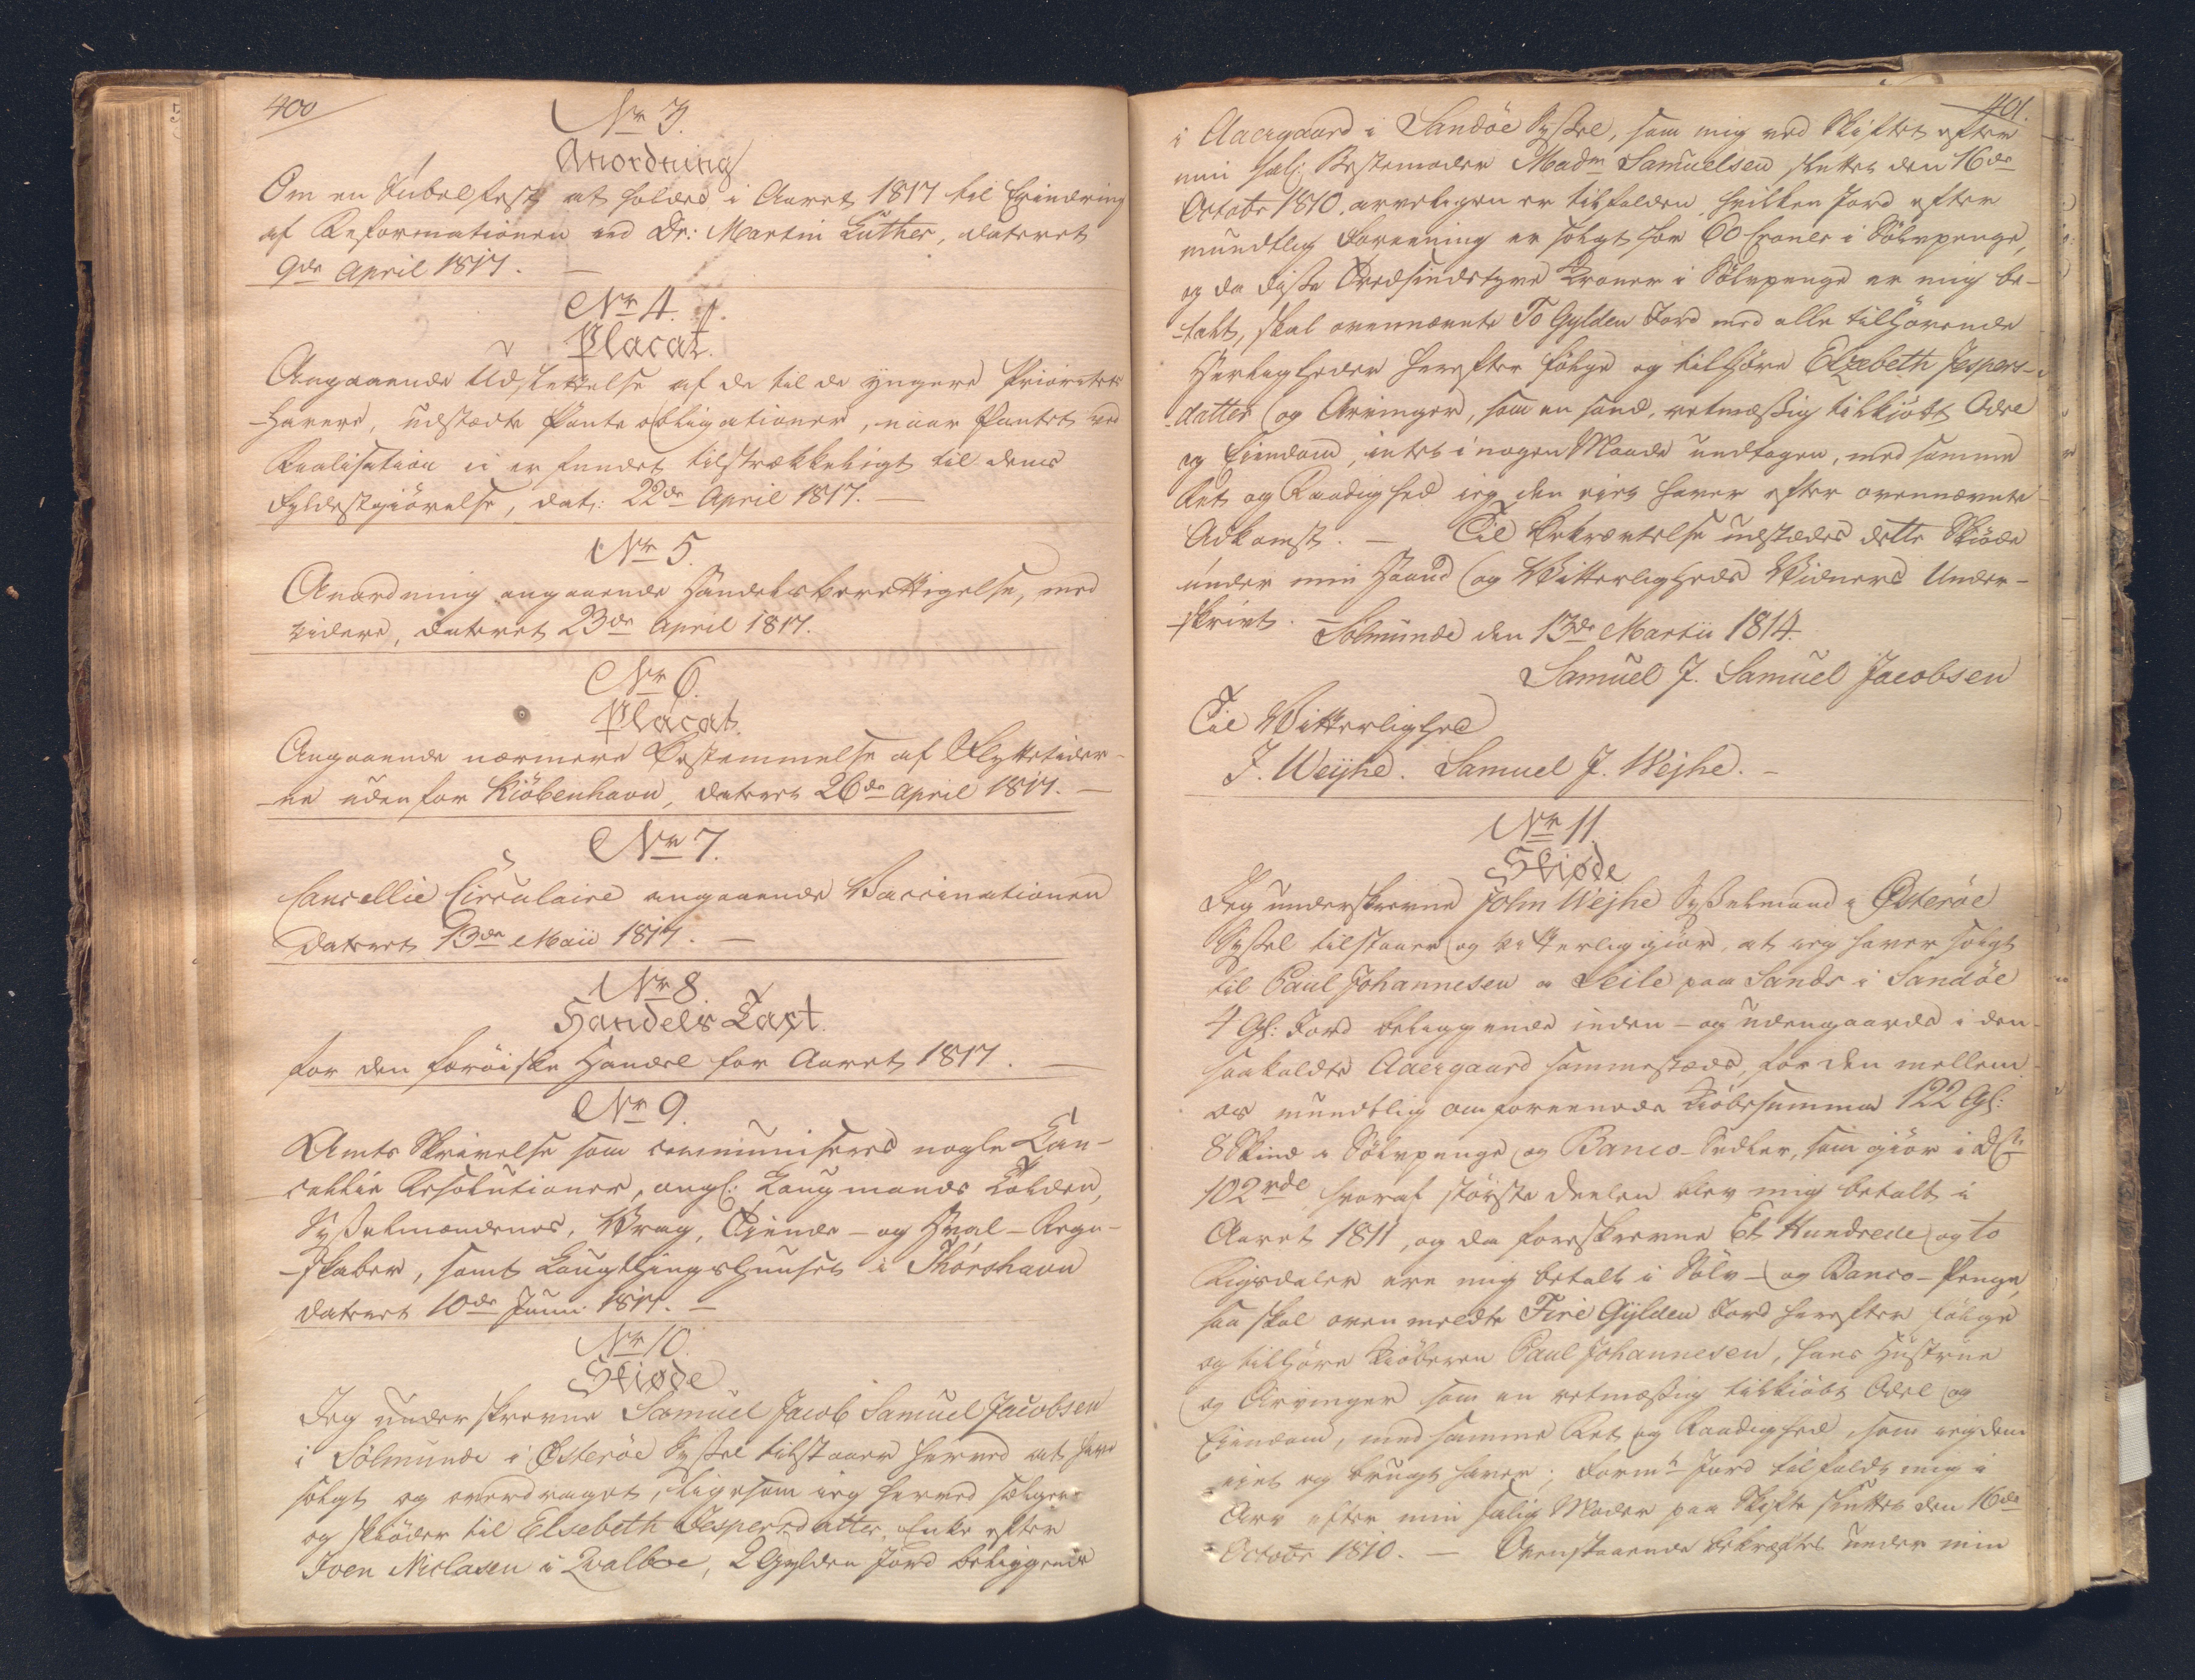 400
No 3.
Anordning
Om en Jubelfest at holdes i Aaret 1817 til Erindring
af Reformationen ved Dr: Martin Luther, dateret
9de April 1817.
No 4.
Placat.
Angaaende Udslettelse af de til de yngere Prioritets
-Havere, udstædte Pante obligationer, naar Pantet ved
Realisation ei er fundet tilstrækkeligt til deres
Fyldestgiørelse, dat: 22de April 1817. —
No 5.
Anordning angaaende Handelsberettigelse, med
videre, dateret 23de April 1817.
No 6.
Placat
Angaaende nærmere Bestemmelse af Flyttetider-
-ne uden for Kiøbenhavn, dateret 26de April 1817. —
No 7.
Cancellie Circulaire angaaende Vaccinationen
dateret 13de Maii 1817. —
No 8.
Handels Taxt.
for den færöiske Handel for Aaret 1817. —
No 9.
Amts Skrivelse som communiseres nogle Can-
cellie Resolutioner, angl: Laugmands Tolden,
Sysselmændenes, Vrag, Tiende- og Hval-Regn-
-skaber, samt Laugthingshuuset i Thorshavn
dateret 10de Junii 1817. —
No 10.
Skiøde
Jeg underskrevne Samuel Jacob Samuel Jacobsen
i Sölmunde i Österöe Syssel tilstaaer herved at have
solgt og overdraget, ligesom jeg herved sælger
og skiöder til Elsebeth Jespersdatter, Enke efter
Joen Niclasen i Qvalböe, 2 Gylden Jord beliggende
401.
i Aaergaard i Sandöe Syssel, som mig ved Skiftet efter
min sal: Bestemoder Madm Samuelsen sluttet den 16de
Octobr 1810, arveligen er tilfalden, hvilken Jord efter
mundtlig Forening er solgt for 60 Croner i Sölvpenge,
og da disse Tredsindstyve Kroner i Sölvpenge er mig be-
-talt, skal ovennævnte To Gylden Jord med alle tilhörende
Herligheder herefter fölge og tilhöre Elzebeth Jespers-
-datter og Arvinger, som en sand, retmæssig tilkiöbt Odel
og Eiendom, intet i nogen Maade undtagen, med samme
Ret og Raadighed jeg den eiet haver efter ovennævnte
Adkomst. — Til Bekræftelse udstædes dette Skiöde
under min Haand og Vitterligheds Vidners Under-
-skrivt. Sölmunde den 13de Martii 1814.
Samuel J. Samuel Jacobsen
Til Vitterlighed
J. Weyhe. Samuel J. Wejhe. —
No 11.
Skiøde
Jeg underskrevne John Wejhe Sysselmand i Österöe
Syssel tilstaaer og vitterliggiör, at jeg haver solgt
til Paul Johannesen a Leile paa Sande i Sandöe
4 Gl: Jord beliggende inden- og udengaards i den
saakaldte Aaergaard sammestæds, for den mellem
os mundtlig omforeenede Kiöbesumma 122 Gl:
8 Skind i Sölvpenge og Banco-Sedler, som giör i Dst
102 rde hvoraf störste Deelen blev mig betalt i
Aaret 1811, og da foreskrevne Et Hundrede og to
Rigsdaler ere mig betalt i Sölv- og Banco-Penge,
saa skal ovenmeldte Fire Gylden Jord herefter fölge
og tilhöre Kiöberen Paul Johannesen, hans Hustrue
og Arvinger som en retmæssig tilkiöbt Odel og
Eiendom, med samme Ret og Raadighed, som jeg dem
eiet og brugt haver; Formte Jord tilfaldt mig i
Arv efter min salig Moder paa Skifte sluttet den 16de
Octobr 1810. — Ovenstaaende bekræftes under min